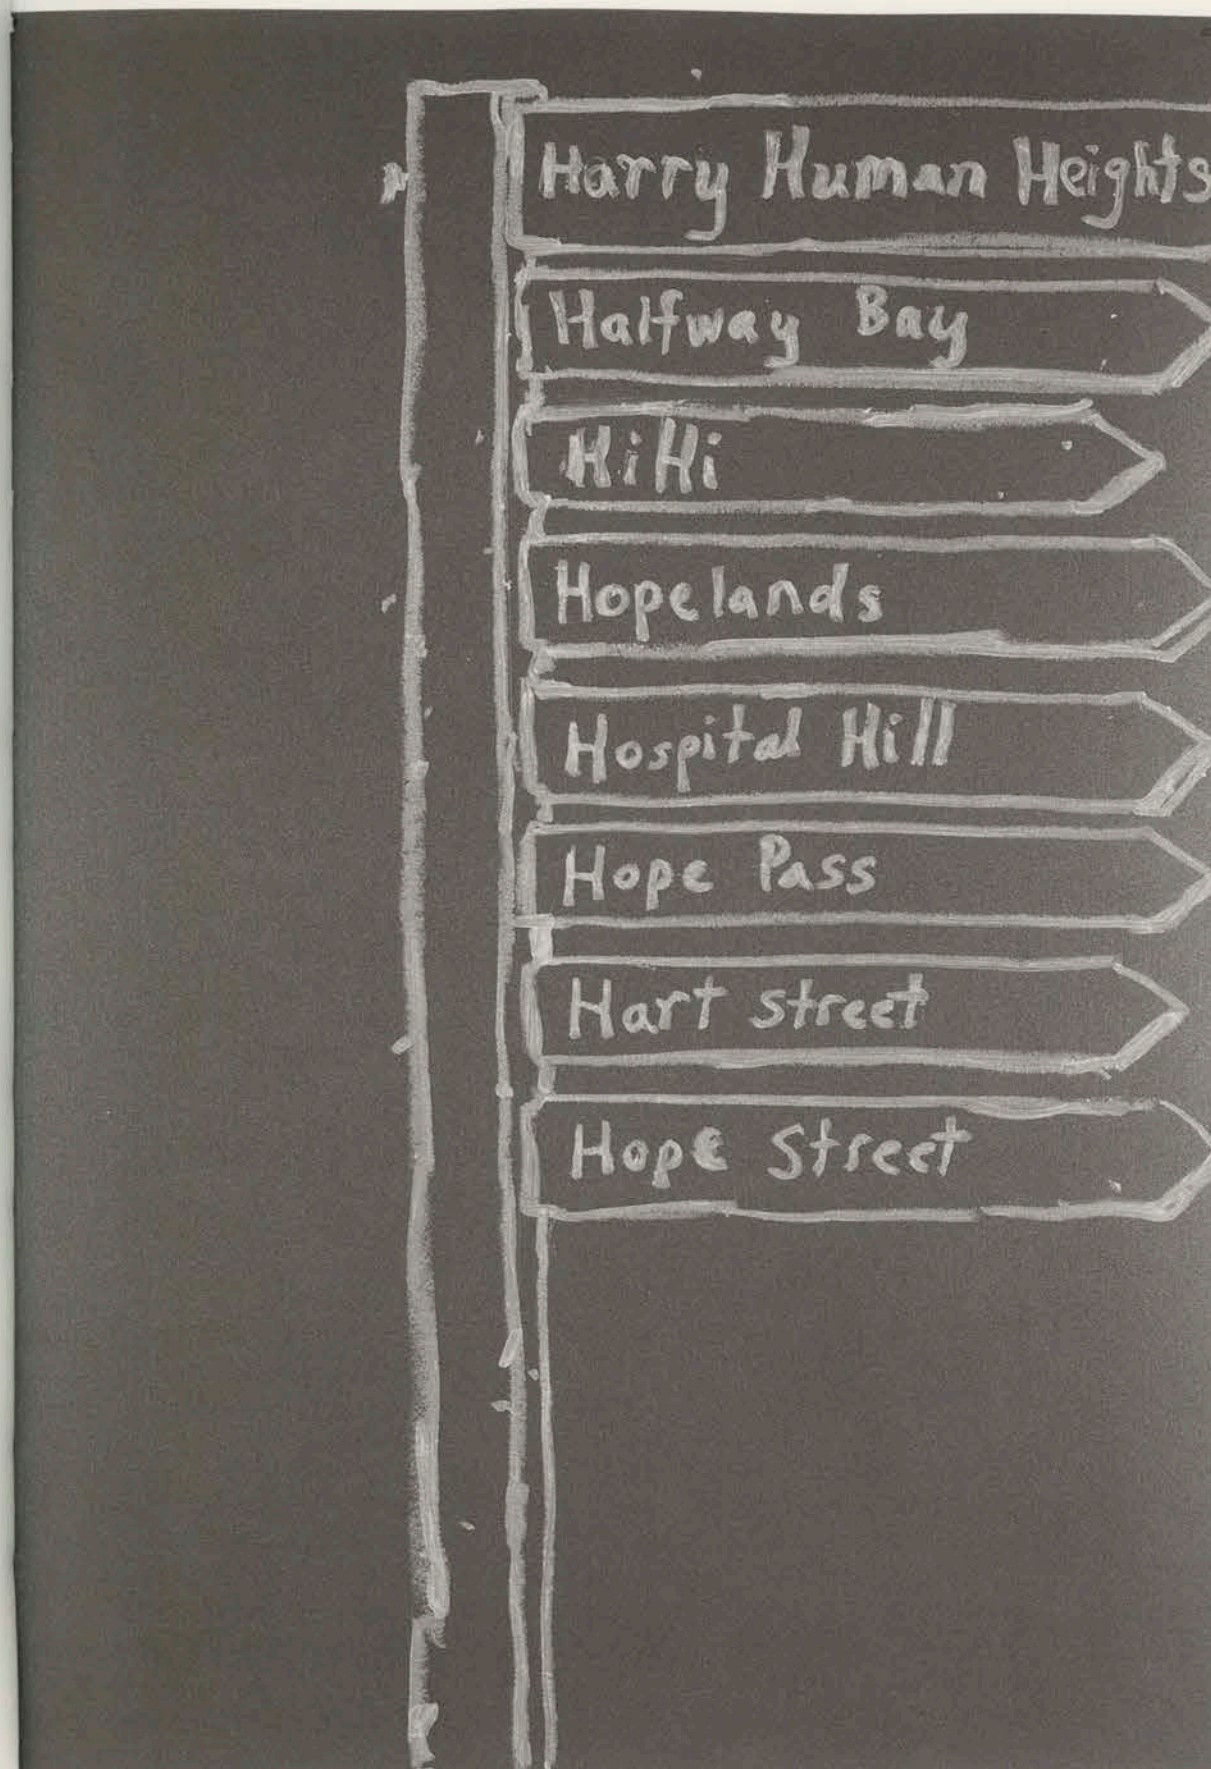 Harry Human Heights
Halfway Bay
HiHi
Hopelands
Hospital Hill
Hope Pass
Hart street
Hope Street